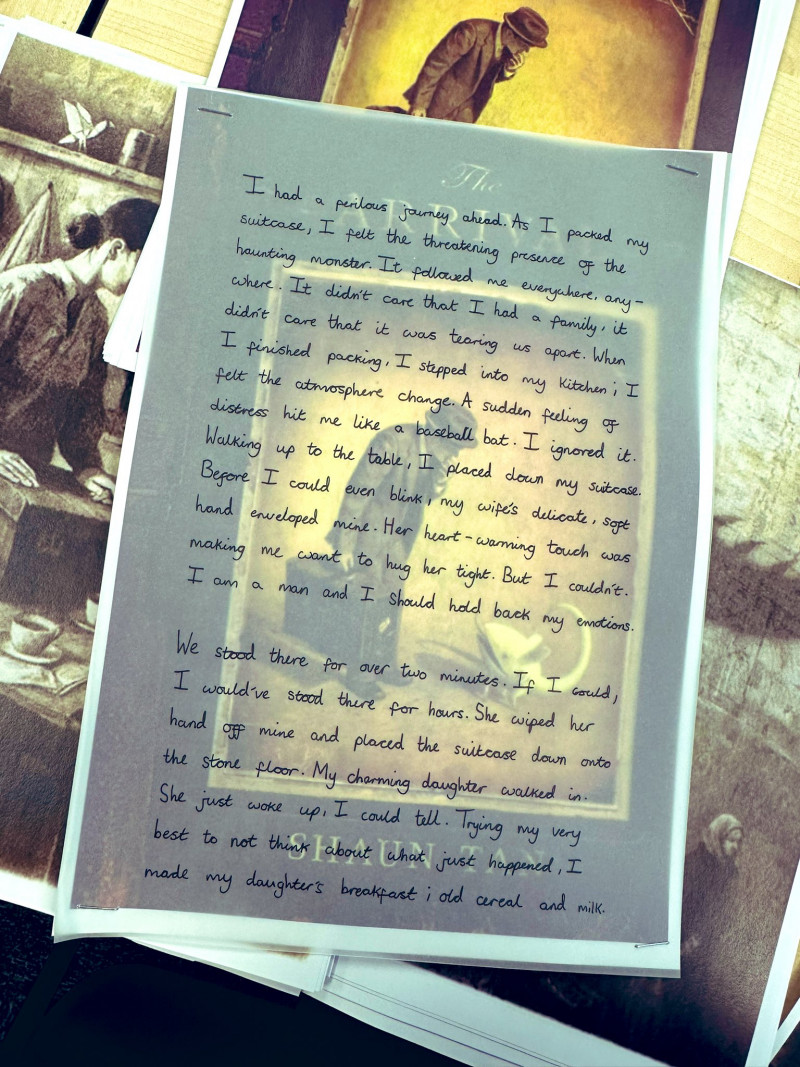 The
ARRIVAL
I had a perilous journey ahead. As I packed my
suitcase, I felt the threatening presence of the
haunting monster. It followed me everywhere, any-
where. It didn't care that I had a family, it
didn't care that it was tearing us apart. When
I finished packing, I stepped into my kitchen; I
felt the atmosphere change. A sudden feeling of
distress hit me like a baseball bat. I ignored it.
Walking up to the table, I placed down my suitcase.
Before I could even blink, my wife's delicate, soft
hand enveloped mine. Her heart-warming touch was
making me want to hug her tight. But I couldn't.
I am a man and I should hold back my emotions.
We stood there for over two minutes. If I could,
I would've stood there for hours. She wiped her
hand off mine and placed the suitcase down onto
the stone floor. My charming daughter walked in.
She just woke up, I could tell. Trying my very
best to not think about what just happened, I
made my daughter's breakfast; old cereal and milk.
SHAUN TAN